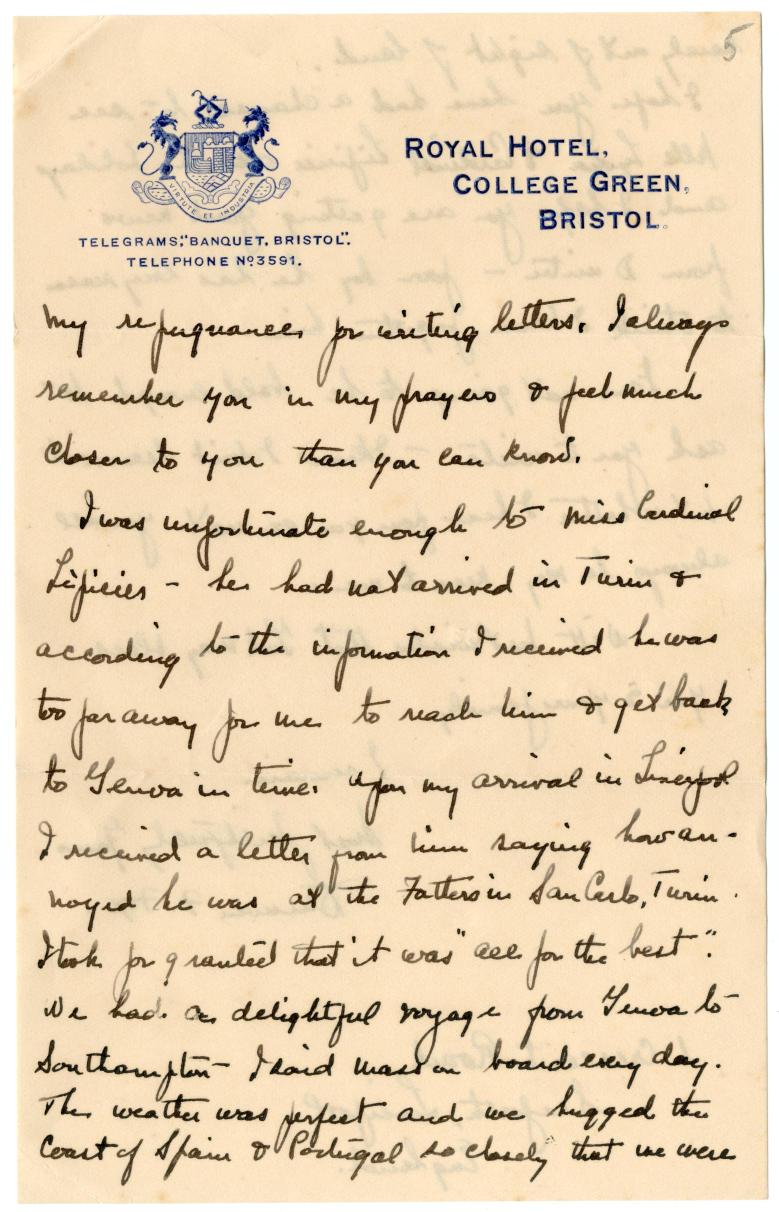 5
VIRTUTE ET INDUSTRIA
ROYAL HOTEL,
COLLEGE GREEN,
BRISTOL.
TELEGRAMS; "BANQUET, BRISTOL".
TELEPHONE Nº 3591.
my repugnance for writing letters. I always
remember you in my prayers & feel much
closer to you than you can know.
I was unfortunate enough to miss Cardinal
Lépicier – he had not arrived in Turin &
according to the information I received he was
too far away for me to reach him & get back
to Genoa in time. Upon my arrival in Liverpool
I received a letter from him saying how an-
noyed he was at the Fathers in San Carlo, Turin.
I took for granted that it was "all for the best".
We had a delightful voyage from Genoa to
Southampton – I said mass on board every day.
The weather was perfect and we hugged the
coast of Spain & Portugal so closely that we were